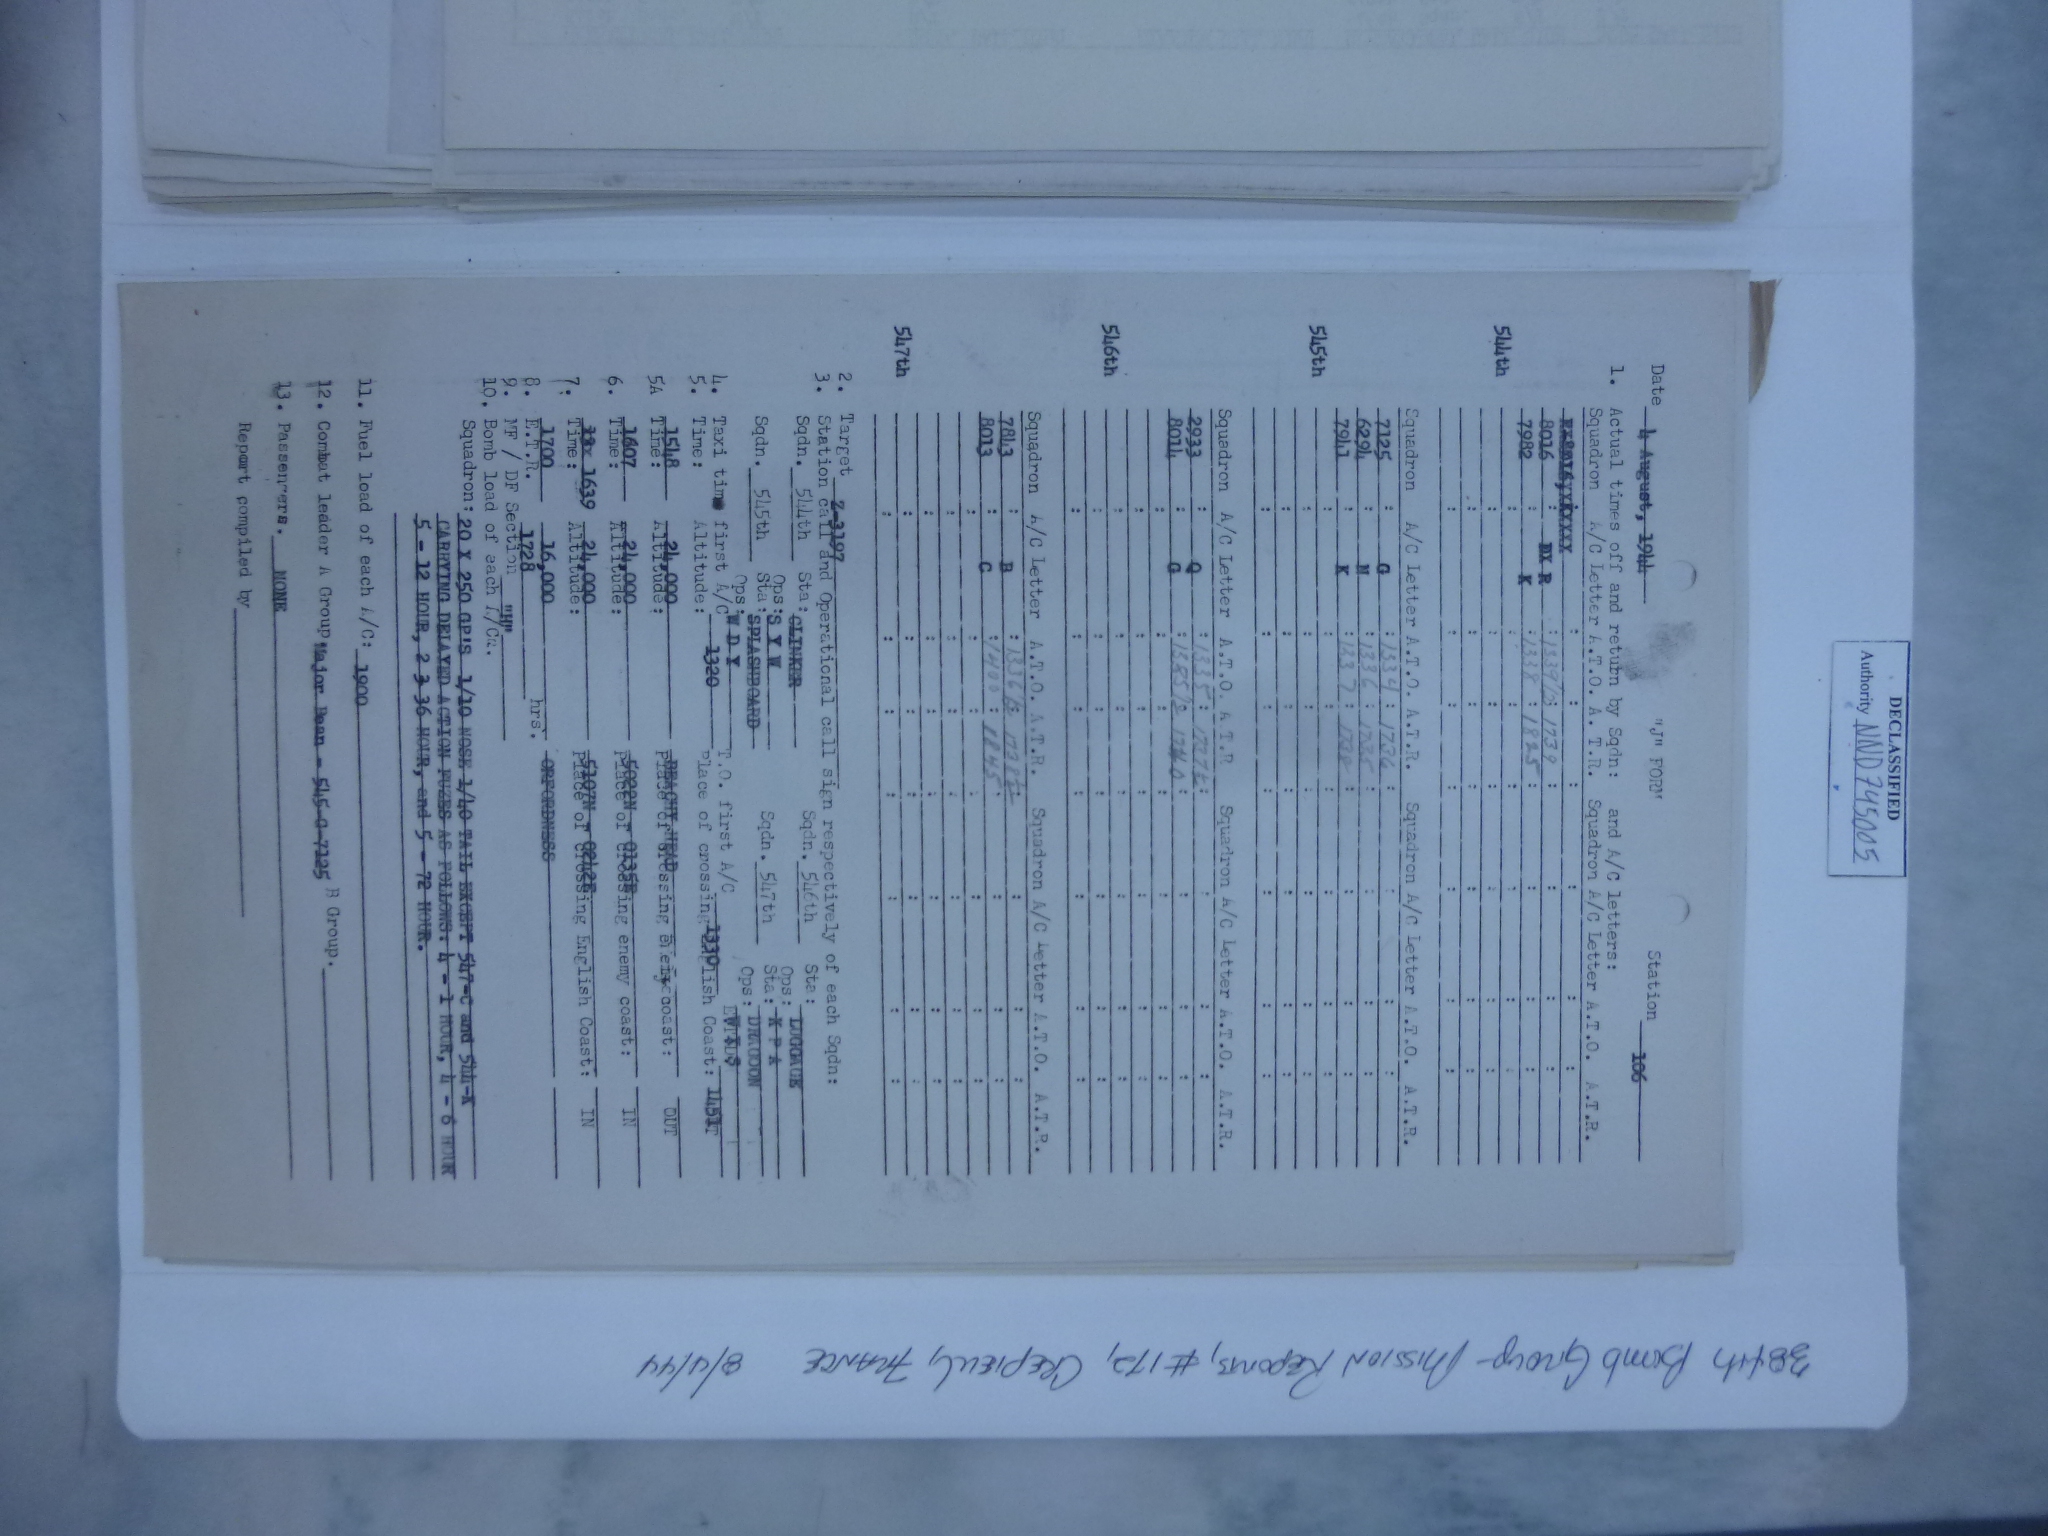 DECLASSIFIED
Authority NND 745005
"J" FORM
Date 4 August, 1944 Station 106
1. Actual times off and return by Sqdn: and A/C letters:
Squadron A/C Letter A.T.O. A.T.R. Squadron A/C Letter A.T.O. A.T.R.
544th
8016 : R : 1339½ : 1739 :
7982 : K : 1338 : 1825 :
Squadron A/C Letter A.T.O. A.T.R. Squadron A/C Letter A.T.O. A.T.R.
545th
7125 : G : 1334 : 1736 :
6294 : N : 1336 : 1735 :
7941 : K : 1337 : 1738 :
Squadron A/C Letter A.T.O. A.T.R. Squadron A/C Letter A.T.O. A.T.R.
546th
2933 : Q : 1335 :
8014 : G : 1740 :
Squadron A/C Letter A.T.O. A.T.R. Squadron A/C Letter A.T.O. A.T.R.
547th
7843 : B : 1336½ : 1738½ :
8013 : C : 1400 : 1845 :
2. Target Z-3197
3. Station call and Operational call sign respectively of each Sqdn:
Sqdn. 544th Sta: CLINKER Sqdn. 546th Sta: LUGGAGE
Ops: S X W Ops: K P A
Sqdn. 545th Sta: SPLASHBOARD Sqdn. 547th Sta: DRAUDON
Ops: W D X Ops:
4. Taxi time first A/C 1320 T.O. first A/C 1330
5. Time: Altitude: Place of crossing English Coast: OUT
1548 24,000 BEACHY HEAD
5A Time: Altitude: Place of crossing enemy coast: OUT
1607 24,000 5022N - 0135E
6. Time: Altitude: Place of crossing enemy coast: IN
1639 24,000 5107N - 0242E
7. Time: Altitude: Place of crossing English Coast: IN
1700 16,000 ORFORDNESS
8. E.T.R. 1728 hrs.
9. MF / DF Section "H"
10. Bomb load of each A/C.
Squadron: 20 X 250 GP'S 1/10 NOSE 1/40 TAIL EXCEPT 547-C and 544-K
CARRYING DELAYED ACTION FUZES AS FOLLOWS: 4 - 1 HOUR, 4 - 6 HOUR
5 - 12 HOUR, 2 3 36 HOUR, and 5 - 72 HOUR.
11. Fuel load of each A/C: 1900
12. Combat leader A Group Major Bean - 545-G-7125 B Group.
13. Passengers. NONE
Report compiled by
384th Bomb Group - Mission Reports, #172, Crepieul, France 8/4/44